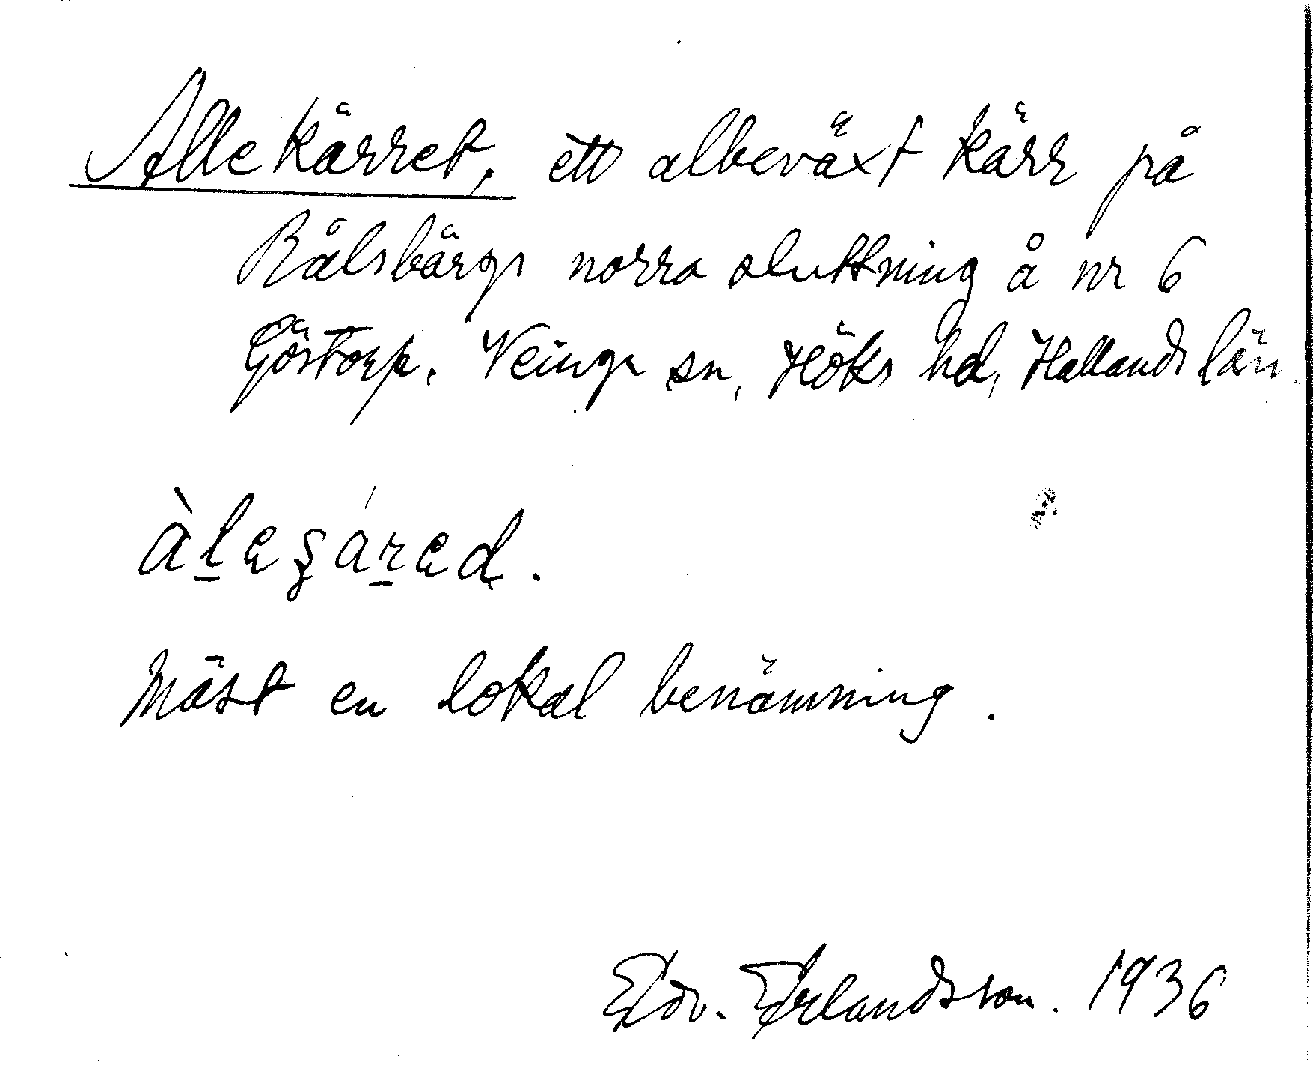 Allekärret, ett albeväxt kärr på
Bålsbärgs norra sluttning å nr 6
Göstorp. Veinge sn, Höks hd, Hallands län.
àlesáred.
Mäst en lokal benämning.
Edv. Erlandsson. 1936